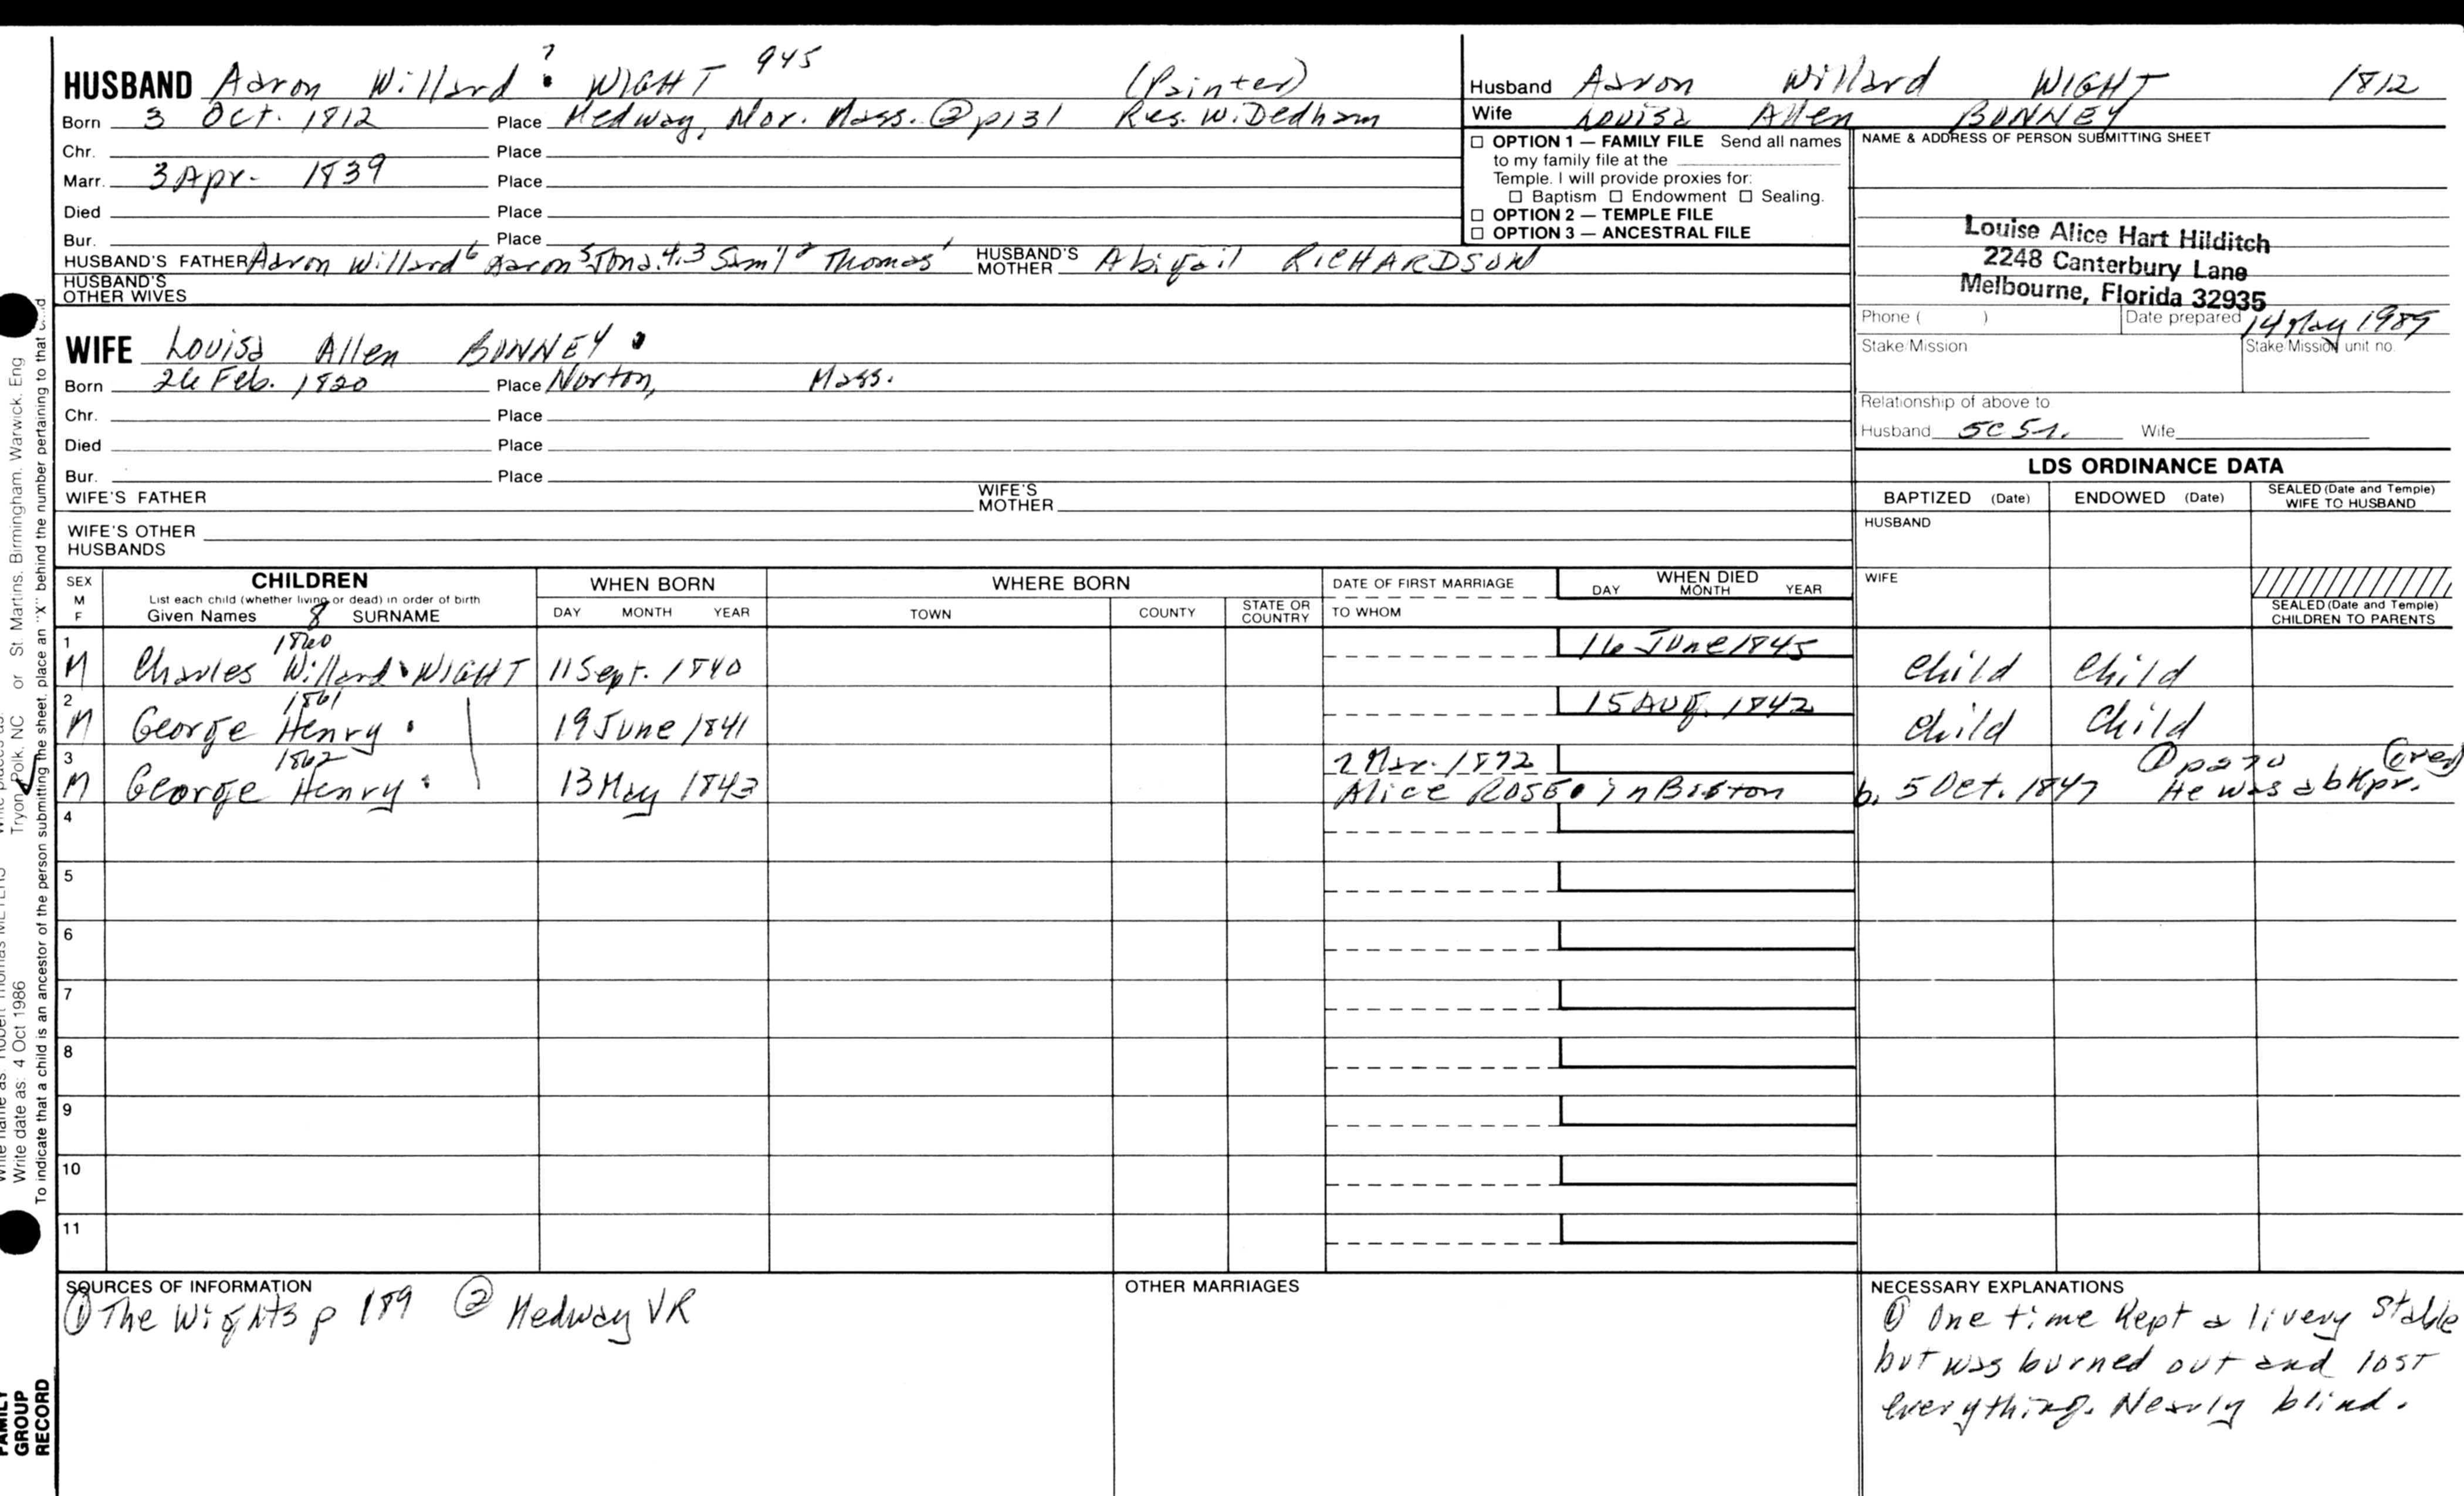 HUSBAND Aaron Willard 7 WIGHT 945 (Painter)
Born 3 Oct. 1812 Place Medway, Nor. Mass. ② p131 Res. W. Dedham
Chr. Place
Marr. 3 Apr. 1839 Place
Died Place
Bur. Place
HUSBAND'S FATHER Aaron Willard 6 Aaron 5 Jona. 4,3 Sam'l 2 Thomas 1 HUSBAND'S MOTHER Abigail RICHARDSON
HUSBAND'S OTHER WIVES
WIFE Louisa Allen BONNEY
Born 26 Feb. 1820 Place Norton, Mass.
Chr. Place
Died Place
Bur. Place
WIFE'S FATHER WIFE'S MOTHER
WIFE'S OTHER HUSBANDS
Husband Aaron Willard WIGHT 1812
Wife Louisa Allen BONNEY
☐ OPTION 1 — FAMILY FILE Send all names
to my family file at the
Temple. I will provide proxies for:
☐ Baptism ☐ Endowment ☐ Sealing.
☐ OPTION 2 — TEMPLE FILE
☐ OPTION 3 — ANCESTRAL FILE
NAME & ADDRESS OF PERSON SUBMITTING SHEET
Louise Alice Hart Hilditch
2248 Canterbury Lane
Melbourne, Florida 32935
Phone ( ) Date prepared 14 May 1989
Stake/Mission Stake/Mission unit no.
Relationship of above to
Husband 5C 5r. Wife
LDS ORDINANCE DATA
BAPTIZED (Date) ENDOWED (Date) SEALED (Date and Temple) WIFE TO HUSBAND
HUSBAND
WIFE
SEALED (Date and Temple) CHILDREN TO PARENTS
SEX M F
CHILDREN
List each child (whether living or dead) in order of birth
Given Names 8 SURNAME
WHEN BORN DAY MONTH YEAR
WHERE BORN TOWN COUNTY STATE OR COUNTRY
DATE OF FIRST MARRIAGE TO WHOM
WHEN DIED DAY MONTH YEAR
1 M 1860 Charles Willard WIGHT 11 Sept. 1840 16 June 1845 Child Child
2 M 1861 George Henry 19 June 1841 15 Aug. 1842 Child Child
3 M 1862 George Henry 13 May 1843 2 Mar. 1872 ① p270 (over)
Alice ROSE in Boston b. 5 Oct. 1847 He was a bkpr.
4
5
6
7
8
9
10
11
SOURCES OF INFORMATION
① The Wights p 189 ② Medway VR
OTHER MARRIAGES
NECESSARY EXPLANATIONS
① One time kept a livery stable
but was burned out and lost
everything. Nearly blind.
St. Martins, Birmingham, Warwick, Eng
Tryon, Polk, NC or
Write name as: Robert Thomas MEYERS
Write date as: 4 Oct 1986
To indicate that a child is an ancestor of the person submitting the sheet, place an "X" behind the number pertaining to that child
FAMILY
GROUP
RECORD